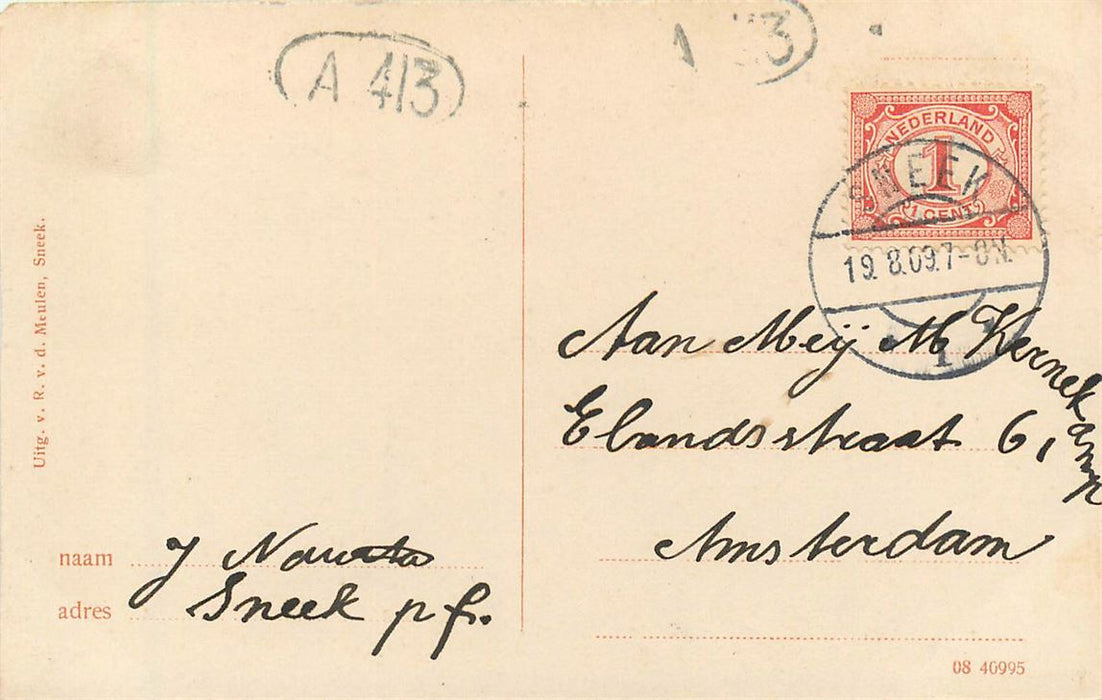 A 413
NEDERLAND
1
1 CENT
SNEEK
19. 8.09.7-8N.
1
Uitg. v. R. v. d. Meulen, Sneek.
Aan Meij M Kernekamp
Elandsstraat 6,
Amsterdam
naam J
adres Sneek p fr.
08 40995